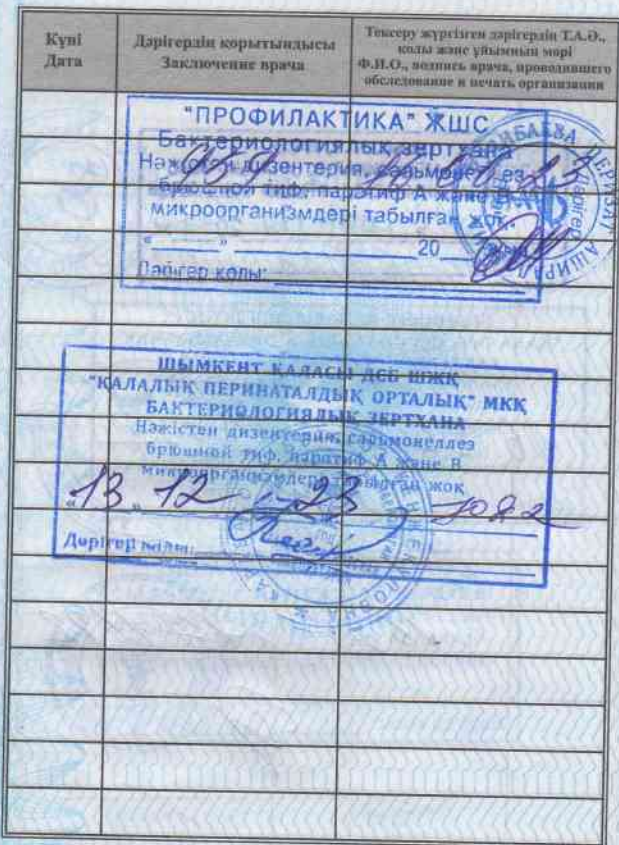 Күні
Дата
Дәрігердің қорытындысы
Заключение врача
Тексеру жүргізген дәрігердің Т.А.Ә.,
қолы және ұйымның мөрі
Ф.И.О., подпись врача, проводившего
обследование и печать организации
"ПРОФИЛАКТИКА" ЖШС
Бактериологиялық зертхана
Нәжістен дизентерия, сальмонеллез
брюшной тиф, паратиф А және
микроорганизмдері табылған жоқ.
«______» 20
Дәрігер қолы:
ШЫМКЕНТ ҚАЛАСЫ ДСБ ШЖҚ
"ҚАЛАЛЫҚ ПЕРИНАТАЛДЫҚ ОРТАЛЫҚ" МКҚ
БАКТЕРИОЛОГИЯЛЫҚ ЗЕРТХАНА
Нәжістен дизентерия, сальмонеллез
брюшной тиф, паратиф А және В
микроорганизмдері табылған жоқ
13 12 23
Дәрігер қолы: